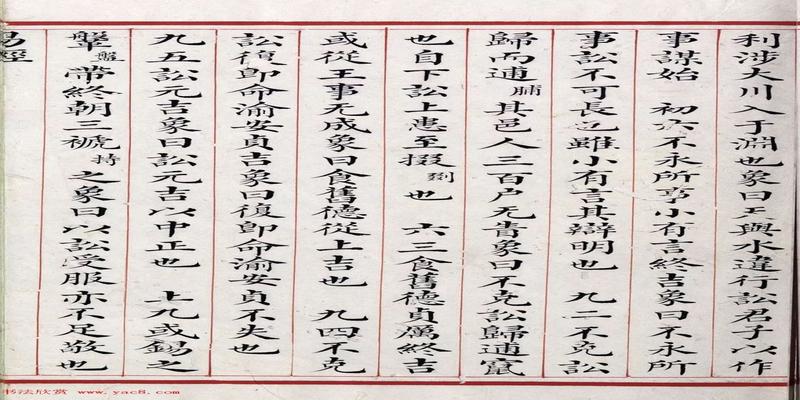 利涉大川入于淵也象曰天與水違行訟君子以作
事謀始　初六不永所事小有言終吉象曰不永所
事訟不可長也雖小有言其辯明也　九二不克訟
歸而逋脯其邑人三百户无眚象曰不克訟歸逋竄
也自下訟上患至掇剟也　六三食舊德貞厲終吉
或從王事无成象曰食舊德從上吉也　九四不克
訟復即命渝安貞吉象曰復即命渝安貞不失也
九五訟元吉象曰訟元吉以中正也　上九或錫之
鞶盤帶終朝三褫持之象曰以訟受服亦不足敬也
易經
书法欣赏 www.yac8.com